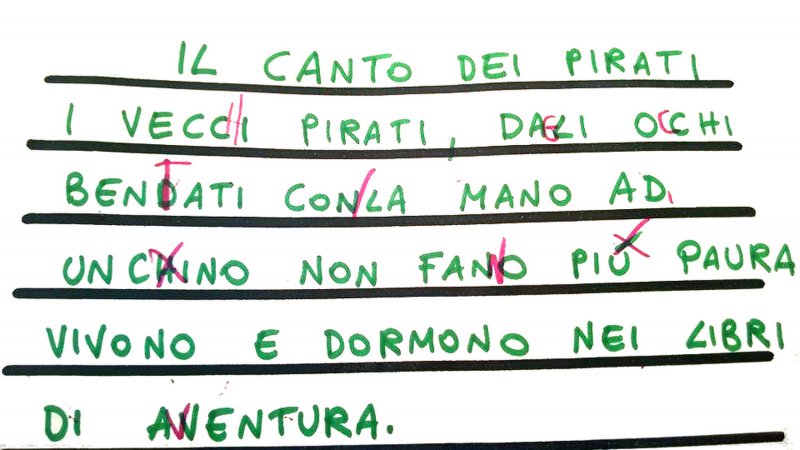 IL CANTO DEI PIRATI
I VECCHI PIRATI, DAGLI OCCHI
BENDATI CON LA MANO AD
UNCHINO NON FANNO PIÙ PAURA
VIVONO E DORMONO NEI LIBRI
DI AVVENTURA.